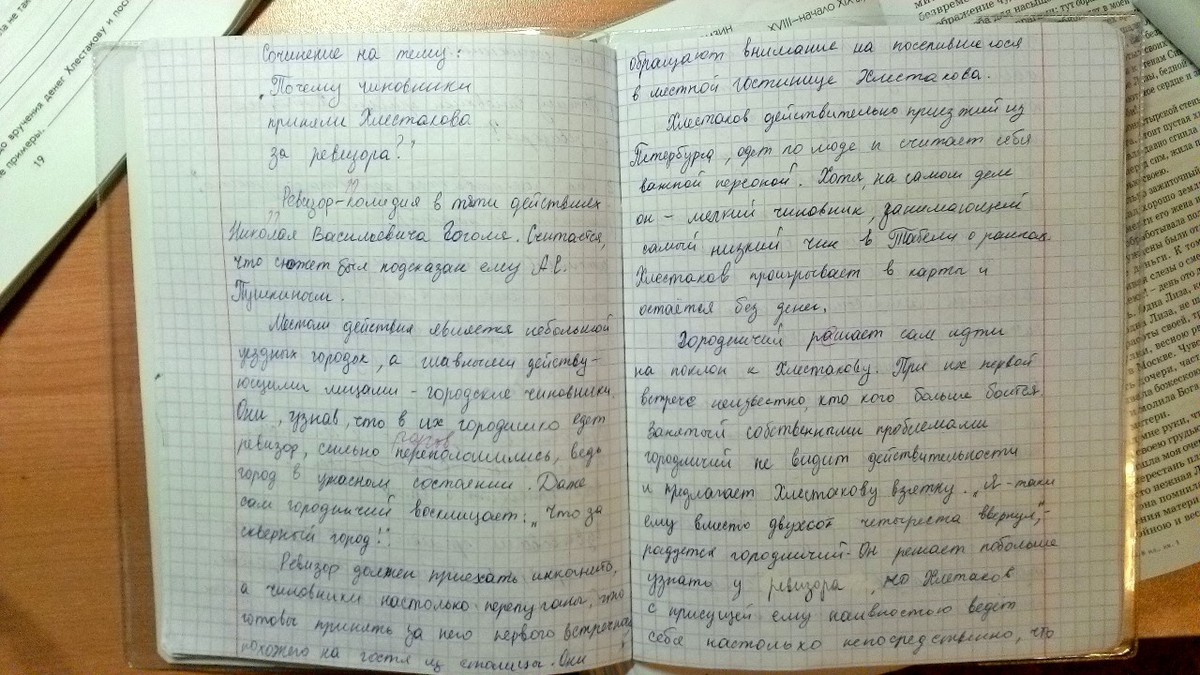 Сочинение на тему:
„Почему чиновники
приняли Хлестакова
за ревизора?"
Ревизор - комидия в пяти действиях
Николая Васильевича Гоголя. Считается,
что сюжет был подсказан ему А.С.
Пушкиным.
Местом действия является небольшой
уездных городок, а главными действу-
ющими лицами - городские чиновники.
Они, узнав, что в их городишко едет
ревизор, сильно переполошились, ведь
город в ужасном состоянии. Даже
сам городничий восклицает: „Что за
скверный город!"
Ревизор должен приехать инкогнито,
а чиновники настолько перепуганы, что
готовы принять за него первого встречного,
похожего на гостя из столицы. Они
обращают внимание на поселившегося
в местной гостинице Хлестакова.
Хлестаков действительно приезжий из
Петербурга, одет по моде и считает себя
важной персоной. Хотя, на самом деле
он - мелкий чиновник, занимающей
самый низкий чин в Табели о рангах.
Хлестаков проигрывает в карты и
остаётся без денег.
Городничий решает сам идти
на поклон к Хлестакову. При их первой
встрече неизвестно, кто кого больше боится.
Занятый собственными проблемами
городничий не видит действительности
и предлагает Хлестакову взятку. „Я-таки
ему вместо двухсот четыреста ввернул",-
радуется городничий. Он решает побольше
узнать у ревизора, но Хлетаков
с присущей ему наивностью ведёт
себя настолько непосредственно, что
до вручения денег Хлестакову и посл
е примеры.
19
XVIII–начало XIX в